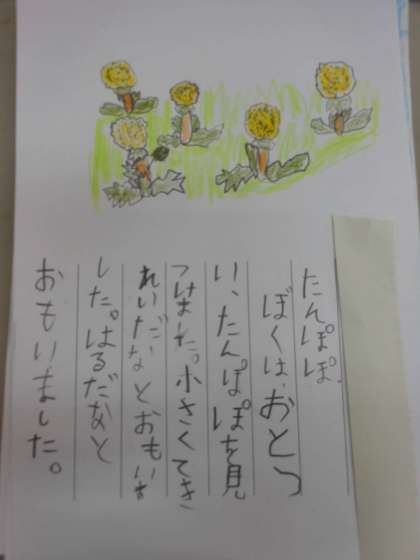 たんぽぽ
ぼくは、おとつ
い、たんぽぽを見
つけました。小さくてき
れいだなとおもいま
した。はるだなと
おもいました。